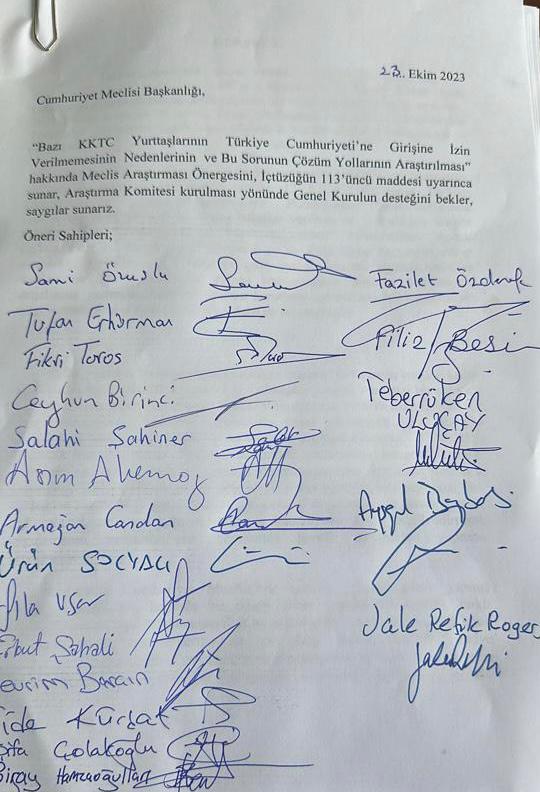 23.. Ekim 2023
Cumhuriyet Meclisi Başkanlığı,
"Bazı KKTC Yurttaşlarının Türkiye Cumhuriyeti'ne Girişine İzin
Verilmemesinin Nedenlerinin ve Bu Sorunun Çözüm Yollarının Araştırılması"
hakkında Meclis Araştırması Önergesini, İçtüzüğün 113'üncü maddesi uyarınca
sunar, Araştırma Komitesi kurulması yönünde Genel Kurulun desteğini bekler,
saygılar sunarız.
Öneri Sahipleri;
Sami Özuslu
Tufan Erhürman
Fikri Toros
Ceyhun Birinci
Salahi Şahiner
Asım Akansoy
Armağan Candan
Ürün SOLYALI
Şıla Uşar
Erkut Şahali
Devrim Barçın
ide Kürşat
ifa Çolakoğlu
Biray Hamzaoğulları
Fazilet Özdenefe
Filiz Besi
Teberrüken
ULUÇAY
Ayşegül Baybars
Jale Refik Rogers